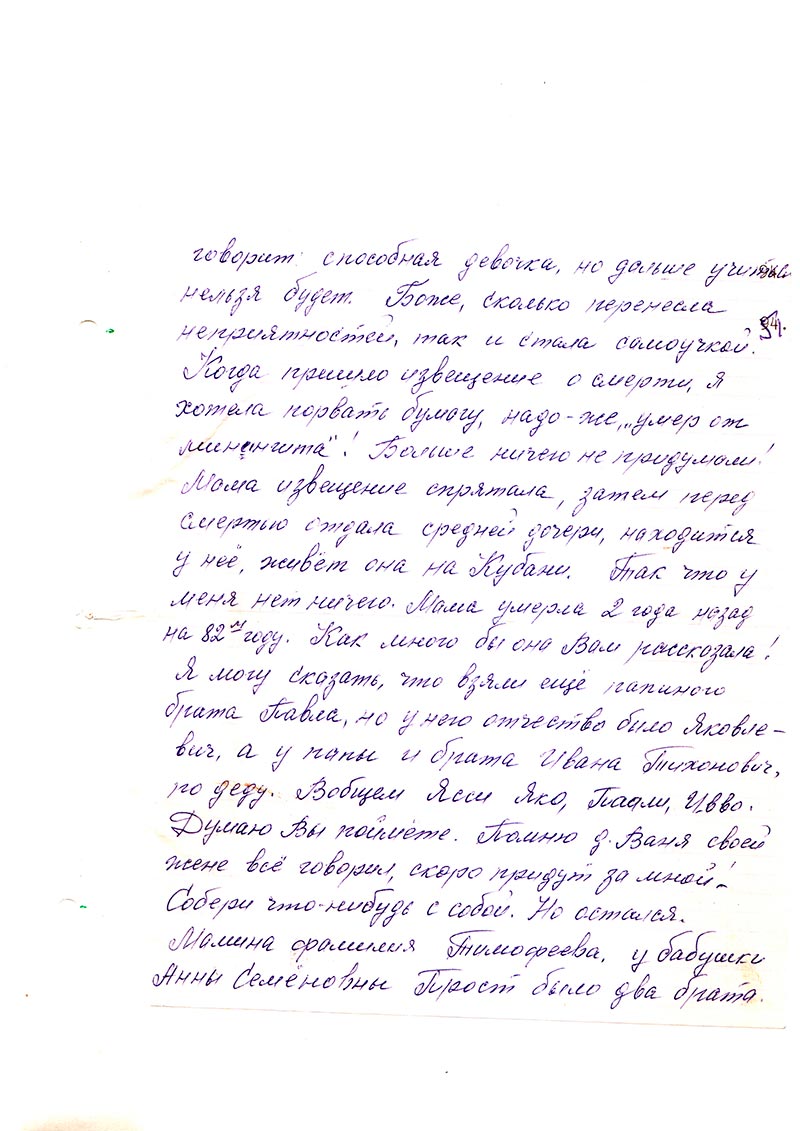 говорит: способная девочка, но дальше учиться
нельзя будет. Боже, сколько перенесла
неприятностей, так и стала самоучкой.
94.
Когда пришло извещение о смерти, я
хотела порвать бумагу, надо-же, „умер от
минингита"! Больше ничего не придумали!
Мама извещение спрятала, затем перед
смертью отдала средней дочери, находится
у неё, живёт она на Кубани. Так что у
меня нет ничего. Мама умерла 2 года назад
на 82м году. Как много бы она Вам рассказала!
Я могу сказать, что взяли ещё папиного
брата Павла, но у него отчество было Яковле-
вич, а у папы и брата Ивана Тихонович,
по деду. Вобщем Ясси Яко, Паали, Ивво.
Думаю Вы поймёте. Помню д. Ваня своей
жене всё говорил, скоро придут за мной!
Собери что-нибудь с собой. Но остался.
Мамина фамилия Тимофеева, у бабушки
Анны Семёновны Прост было два брата.